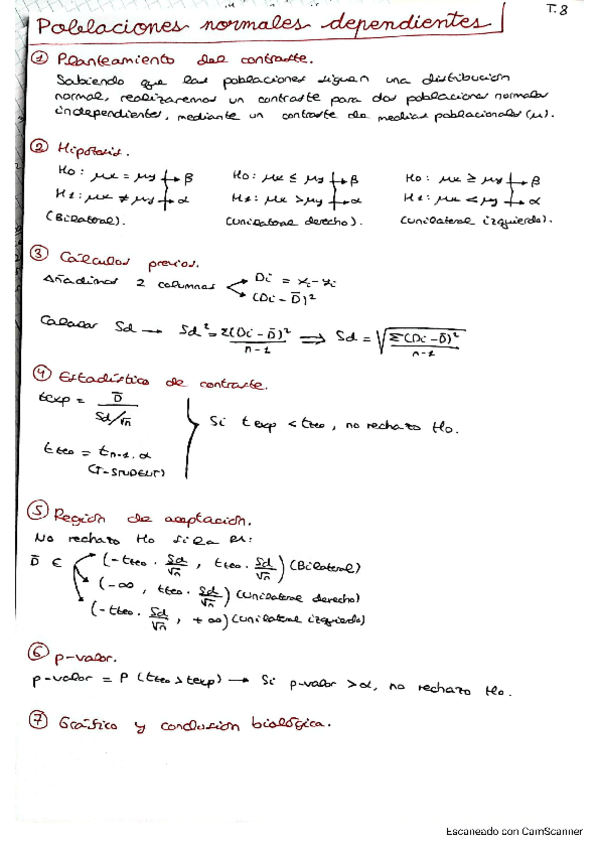 T. 8
Poblaciones normales dependientes
① Planteamiento del contraste.
Sabiendo que las poblaciones siguen una distribución
normal, realizaremos un contraste para dos poblaciones normales
independientes, mediante un contraste de medias poblacionales (μ).
② Hipótesis.
H0: μx = μy → β   H0: μx ≤ μy → β   H0: μx ≥ μy → β
H1: μx ≠ μy → α   H1: μx > μy → α   H1: μx < μy → α
(Bilateral).   (unilateral derecho).   (unilateral izquierdo).
③ Cálculos previos.
Añadimos 2 columnas Di = xi - yi
(Di - D̄)²
Calcular Sd → Sd² = Σ(Di - D̄)² / n-1 ⟹ Sd = √(Σ(Di - D̄)² / n-1)
④ Estadístico de contraste.
texp = D̄ / (Sd/√n)
Si texp < tteo, no rechazo H0.
tteo = tn-1, α
(T-STUDENT)
⑤ Región de aceptación.
No rechazo H0 si la
D̄ ∈ (-tteo · Sd/√n, tteo · Sd/√n) (Bilateral)
(-∞, tteo · Sd/√n) (unilateral derecho)
(-tteo · Sd/√n, +∞) (unilateral izquierdo)
⑥ p-valor.
p-valor = P (tteo > texp) → Si p-valor > α, no rechazo H0.
⑦ Gráfico y conclusión biológica.
Escaneado con CamScanner